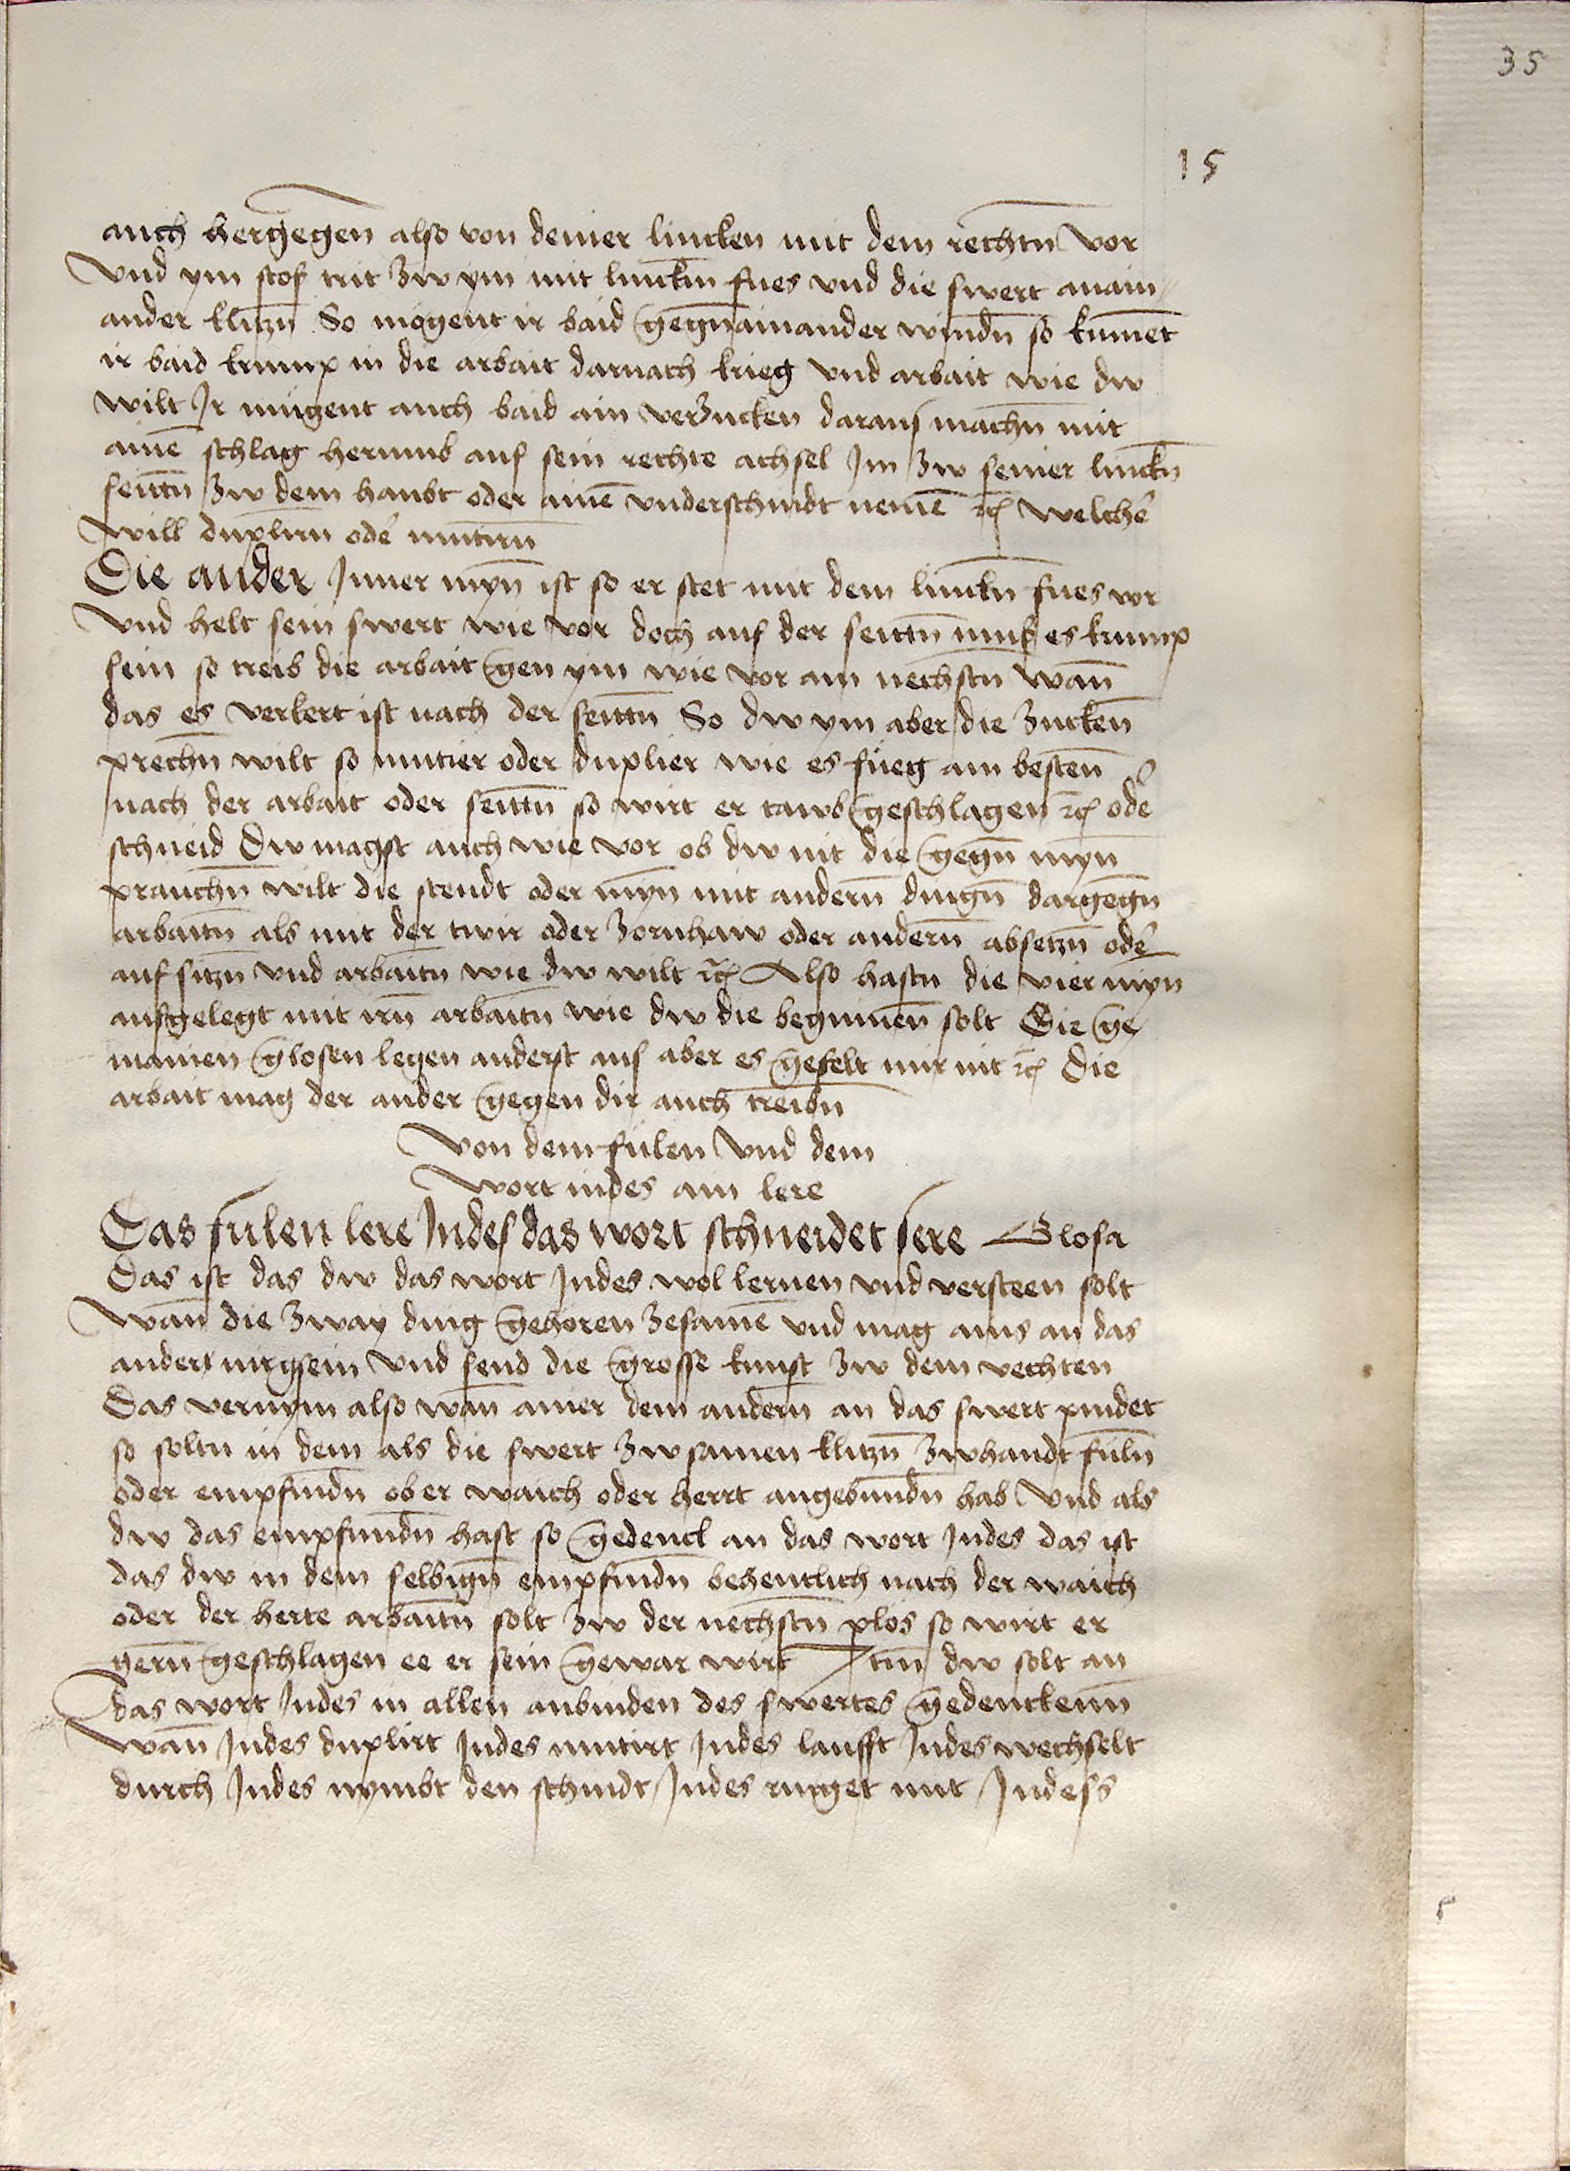 35
15
auch hergegen also von deiner lincken mit dem rechtn̄ vor
Vnd ym stos trit zw ym mit linckm̄ fues vnd die swert anain
ander klitzn̄ So mögent ir baid gegn̄ ainander windn̄ so kumēt
ir baid krump in die arbait darnach krieg vnd arbait wie dw
wilt Ir mügent auch baid ain verzucken daraus machn̄ mit
ainē schlag herumb auf sein rechte achsel Im zw seiner linckn̄
seittn̄ zw dem haubt oder ainē vnderschnidt nemē ⁊c̄ welchē
will duplirn̄ odē mutirn̄
Die ander Inner mȳn ist so er stet mit dem linckn̄ fues vor
Vnd helt sein swert wie vor doch auf der seittn̄ mus es krump
sein so treib die arbait gen ym wie vor am nechstn̄ wān
das es verkert ist nach der seittn̄ So dw ym aber die zuckēn
prechn̄ wilt so mutier oder duplier wie es füeg am bestēn
nach der arbait oder seittn̄ so wirt er tawb geschlagen ⁊c̄ odē
schneid Dw magst auch wie vor ob dw nit die gegn̄ mȳn
prauchn̄ wilt die stendt oder mȳn mit andern̄ dingn̄ dargegn̄
arbaitn̄ als mit der twir oder zornhaw oder andern̄ absetzn̄ odē
auf sitzn̄ vnd arbaitn̄ wie dw wilt ⁊c̄ Also hastu die vier myn
ausgelegt mit irn̄ arbaitn̄ wie dw die beginnēn solt Die ge
mainen glosen legen anderst aus aber es gefelt mir nit ⁊c̄ Die
arbait mag der ander gegen dir auch treibn̄
Von dem fülen Vnd dem
wort indes ain lere
Das fülen lere Indes das wort schneidet sere Glosa
Das ist das dw das wort Indes wol lernen vnd versteen solt
Wān die zway ding gehören zesamē vnd mag ains an das
ander nit gsein Vnd send die grosse kunst zw dem vechten
Das vernym also wān ainer dem andern̄ an das swert pindet
so soltu in dem als die swert zwsamen klitzn̄ zwhandt füln̄
oder empfindn̄ ob er waich oder hertt angebundn̄ hab Vnd als
dw das empfundn̄ hast so gedenck an das wort Indes das ist
das dw in dem selbign̄ empfindn̄ behentlich nach der waich
oder der herte arbaitn̄ solt zw der nechstn̄ plös so wirt er
gern̄ geschlagen ee er sein gewar wirt Itm̄ dw solt an
das wort Indes in allen anbinden des swertes gedenckenn̄
Wān Indes duplirt Indes mutirt Indes laufft Indes wechselt
durch Indes nymbt den schnidt Indes ringet mit Indess